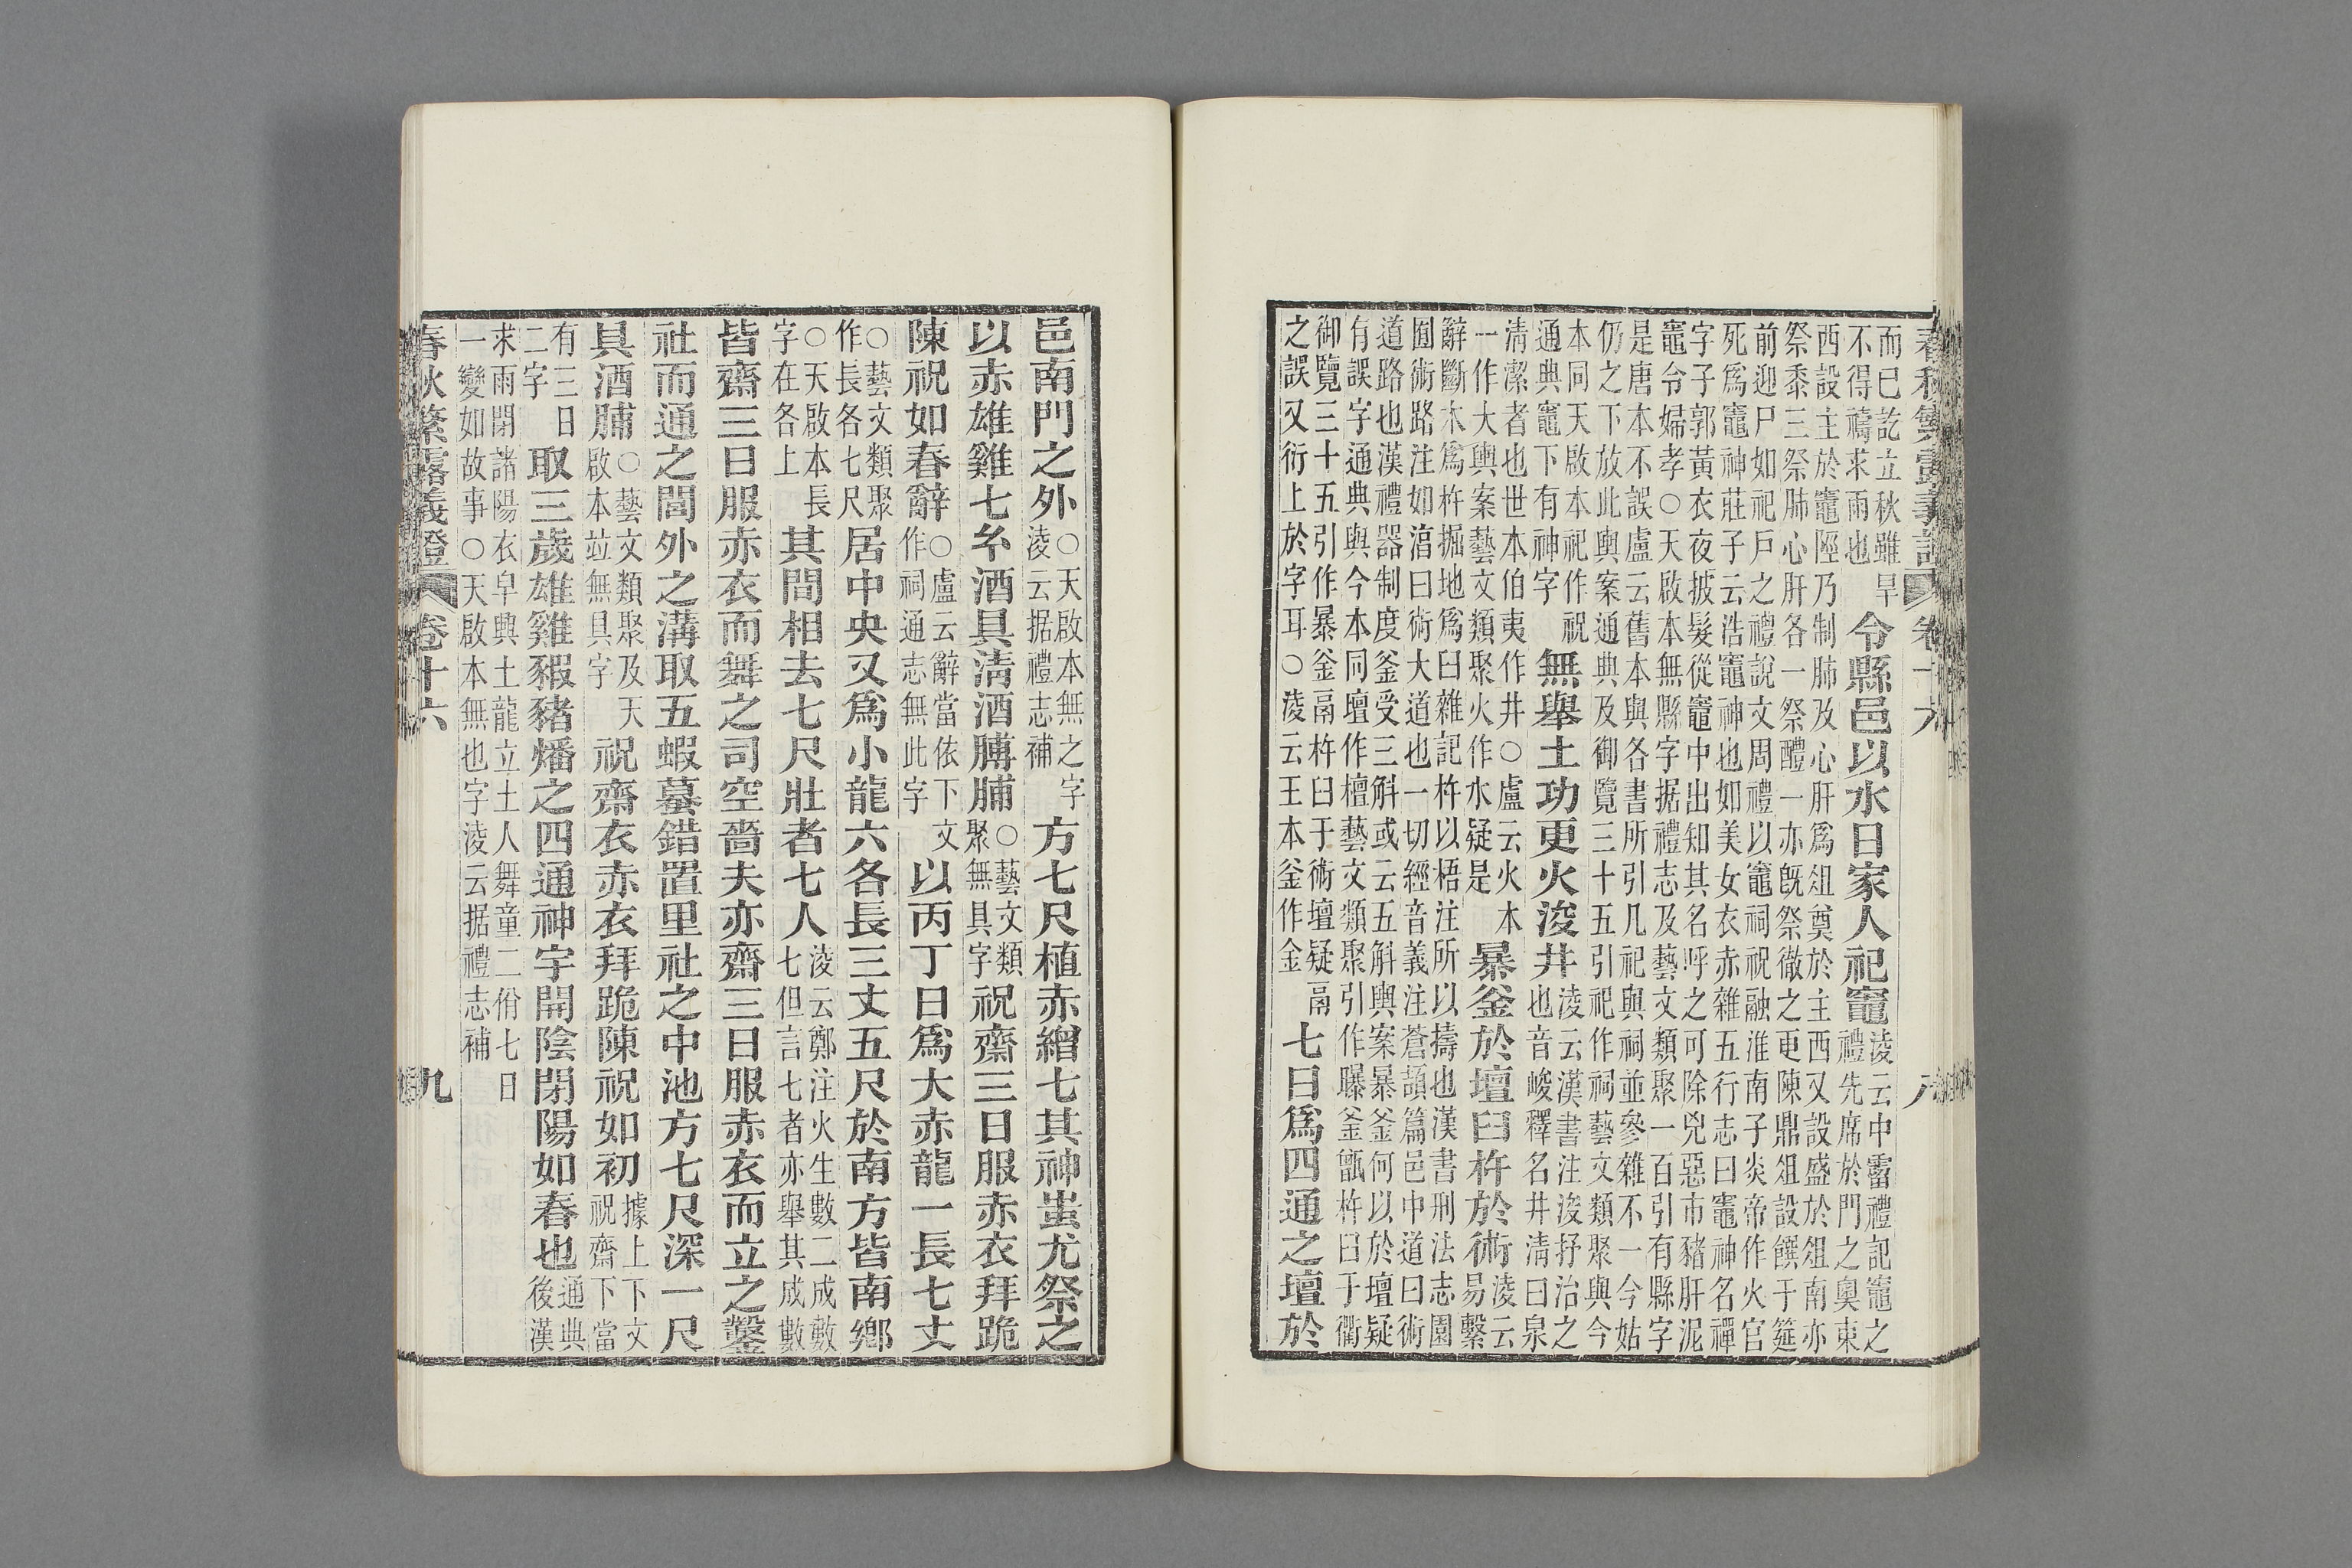 春秋繁露義證 卷十六 八
而已訖立秋雖旱
不得禱求雨也
令縣邑以水日家人祀竈
淩云中霤禮記竈之
禮先席於門之奧東
西設主於竈陘乃制肺及心肝爲俎奠於主西又設盛於俎南亦
祭黍三祭肺心肝各一祭醴一亦旣祭徹之更陳鼎俎設饌于筵
前迎尸如祀戶之禮說文周禮以竈祠祝融淮南子炎帝作火官
死爲竈神莊子云浩竈神也如美女衣赤雜五行志曰竈神名禪
字子郭黃衣夜披髮從竈中出知其名呼之可除兇惡市豬肝泥
竈令婦孝○天啟本無縣字据禮志及藝文類聚一百引有縣字
是唐本不誤盧云舊本與各書所引几祀與祠並參雜不一今姑
仍之下放此輿案通典及御覽三十五引祀作祠藝文類聚與今
本同天啟本祀作祝
通典竈下有神字
無舉土功更火浚井
淩云漢書注浚抒治之
也音峻釋名井淸曰泉
淸潔者也世本伯夷作井○盧云火本
一作大輿案藝文類聚火作水疑是
暴釜於壇臼杵於術
淩云
易繫
辭斷木爲杵掘地爲臼雜記杵以梧注所以擣也漢書刑法志園
圄術路注如淐曰術大道也一切經音義注蒼頡篇邑中道曰術
道路也漢禮器制度釜受三斛或云五斛輿案暴釜何以於壇疑
有誤字通典與今本同壇作檀藝文類聚引作曝釜甑杵臼于衢
御覽三十五引作暴釜鬲杵臼于術壇疑鬲
之誤又衍上於字耳○淩云王本釜作金
七日爲四通之壇於
邑南門之外
○天啟本無之字
淩云据禮志補
方七尺植赤繒七其神蚩尤祭之
以赤雄雞七玄酒具淸酒膊脯
○藝文類
聚無具字
祝齋三日服赤衣拜跪
陳祝如春辭
○盧云辭當依下文
作祠通志無此字
以丙丁日爲大赤龍一長七丈
○藝文類聚
作長各七尺
居中央又爲小龍六各長三丈五尺於南方皆南鄉
○天啟本長
字在各上
其間相去七尺壯者七人
淩云鄭注火生數二成數
七但言七者亦舉其成數
皆齋三日服赤衣而舞之司空嗇夫亦齋三日服赤衣而立之鑿
社而通之閭外之溝取五蝦蟇錯置里社之中池方七尺深一尺
具酒脯
○藝文類聚及天
啟本竝無具字
祝齋衣赤衣拜跪陳祝如初
據上下文
祝齋下當
有三日
二字
取三歲雄雞豭豬燔之四通神宇開陰閉陽如春也
通典
後漢
求雨閉諸陽衣皁興土龍立土人舞童二佾七日
一變如故事○天啟本無也字淩云据禮志補
春秋繁露義證 卷十六 九